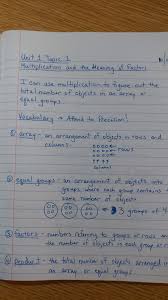 Unit 1 Topic 1
Multiplication and the Meaning of Factors
I can use multiplication to figure out the
total number of objects in an array or
equal groups.
Vocabulary → Attend to Precision!
① array - an arrangement of objects in rows and
columns.
rows
column
② equal groups - an arrangement of objects into
groups, where each group contains
same number of objects
3 groups of 4
③ factors - numbers referring to groups or rows and
the number of objects in each group or
④ product - the total number of objects arranged in
an array or equal groups.